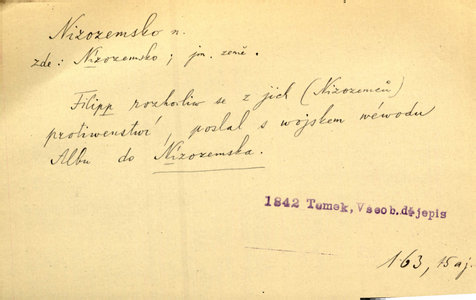 Nizozemsko n.
zde: Nizozemsko; jm. země.
Filipp rozhorliw se z jich (Nizozemců)
protiwenstwí, poslal s wojskem wéwodu
Albu do Nizozemska.
1842 Tomek, Všeob. dějepis
163, 15 aj.